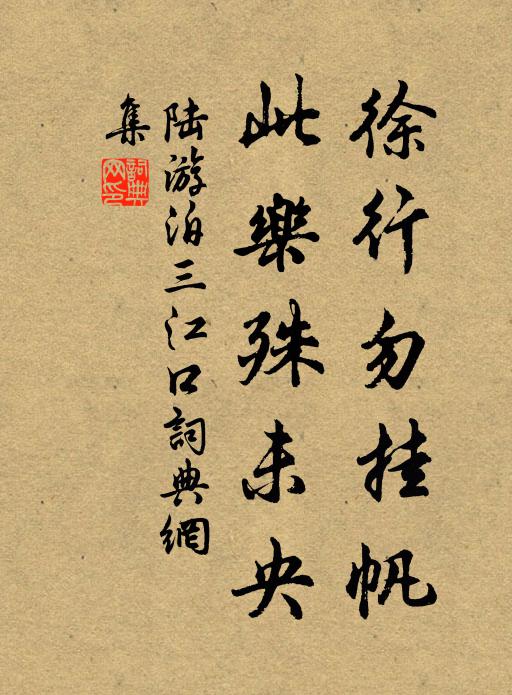 徐行勿挂帆
此樂殊未央
陆游泊三江口詞典網
集
詞典網印